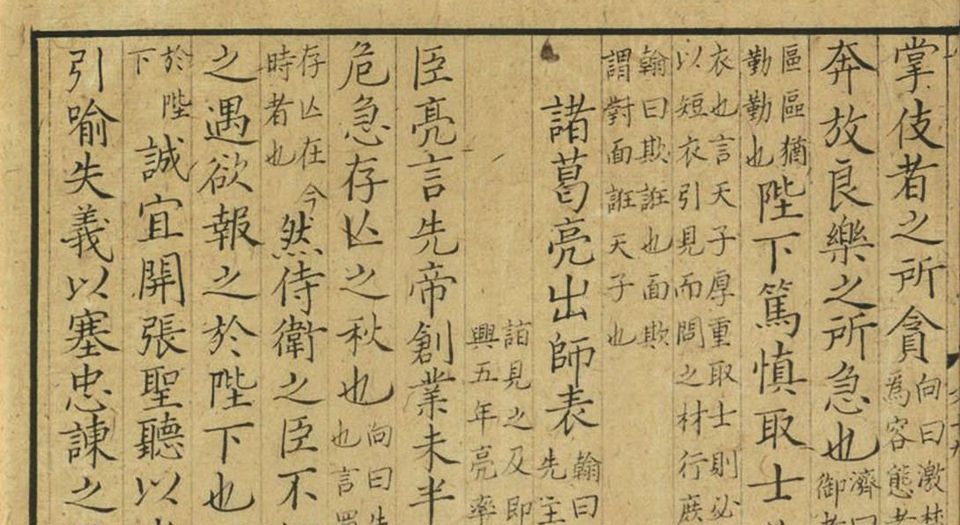 掌伎者之所貪向曰激楚為容態者
奔放良樂之所急也濟曰御者
區區猶勤勤也陛下篤慎取士
衣也言天子厚重取士則必
以短衣引見而問之材行庶
翰曰欺誑也面欺
謂對面誑天子也
諸葛亮出師表翰曰先主
詣見之及即
興五年亮率
臣亮言先帝創業未半
危急存亾之秋也向曰也言
存亾在今時者也然侍衛之臣不
之遇欲報之於陛下也
於陛下誠宜開張聖聽以
引喻失義以塞忠諫之